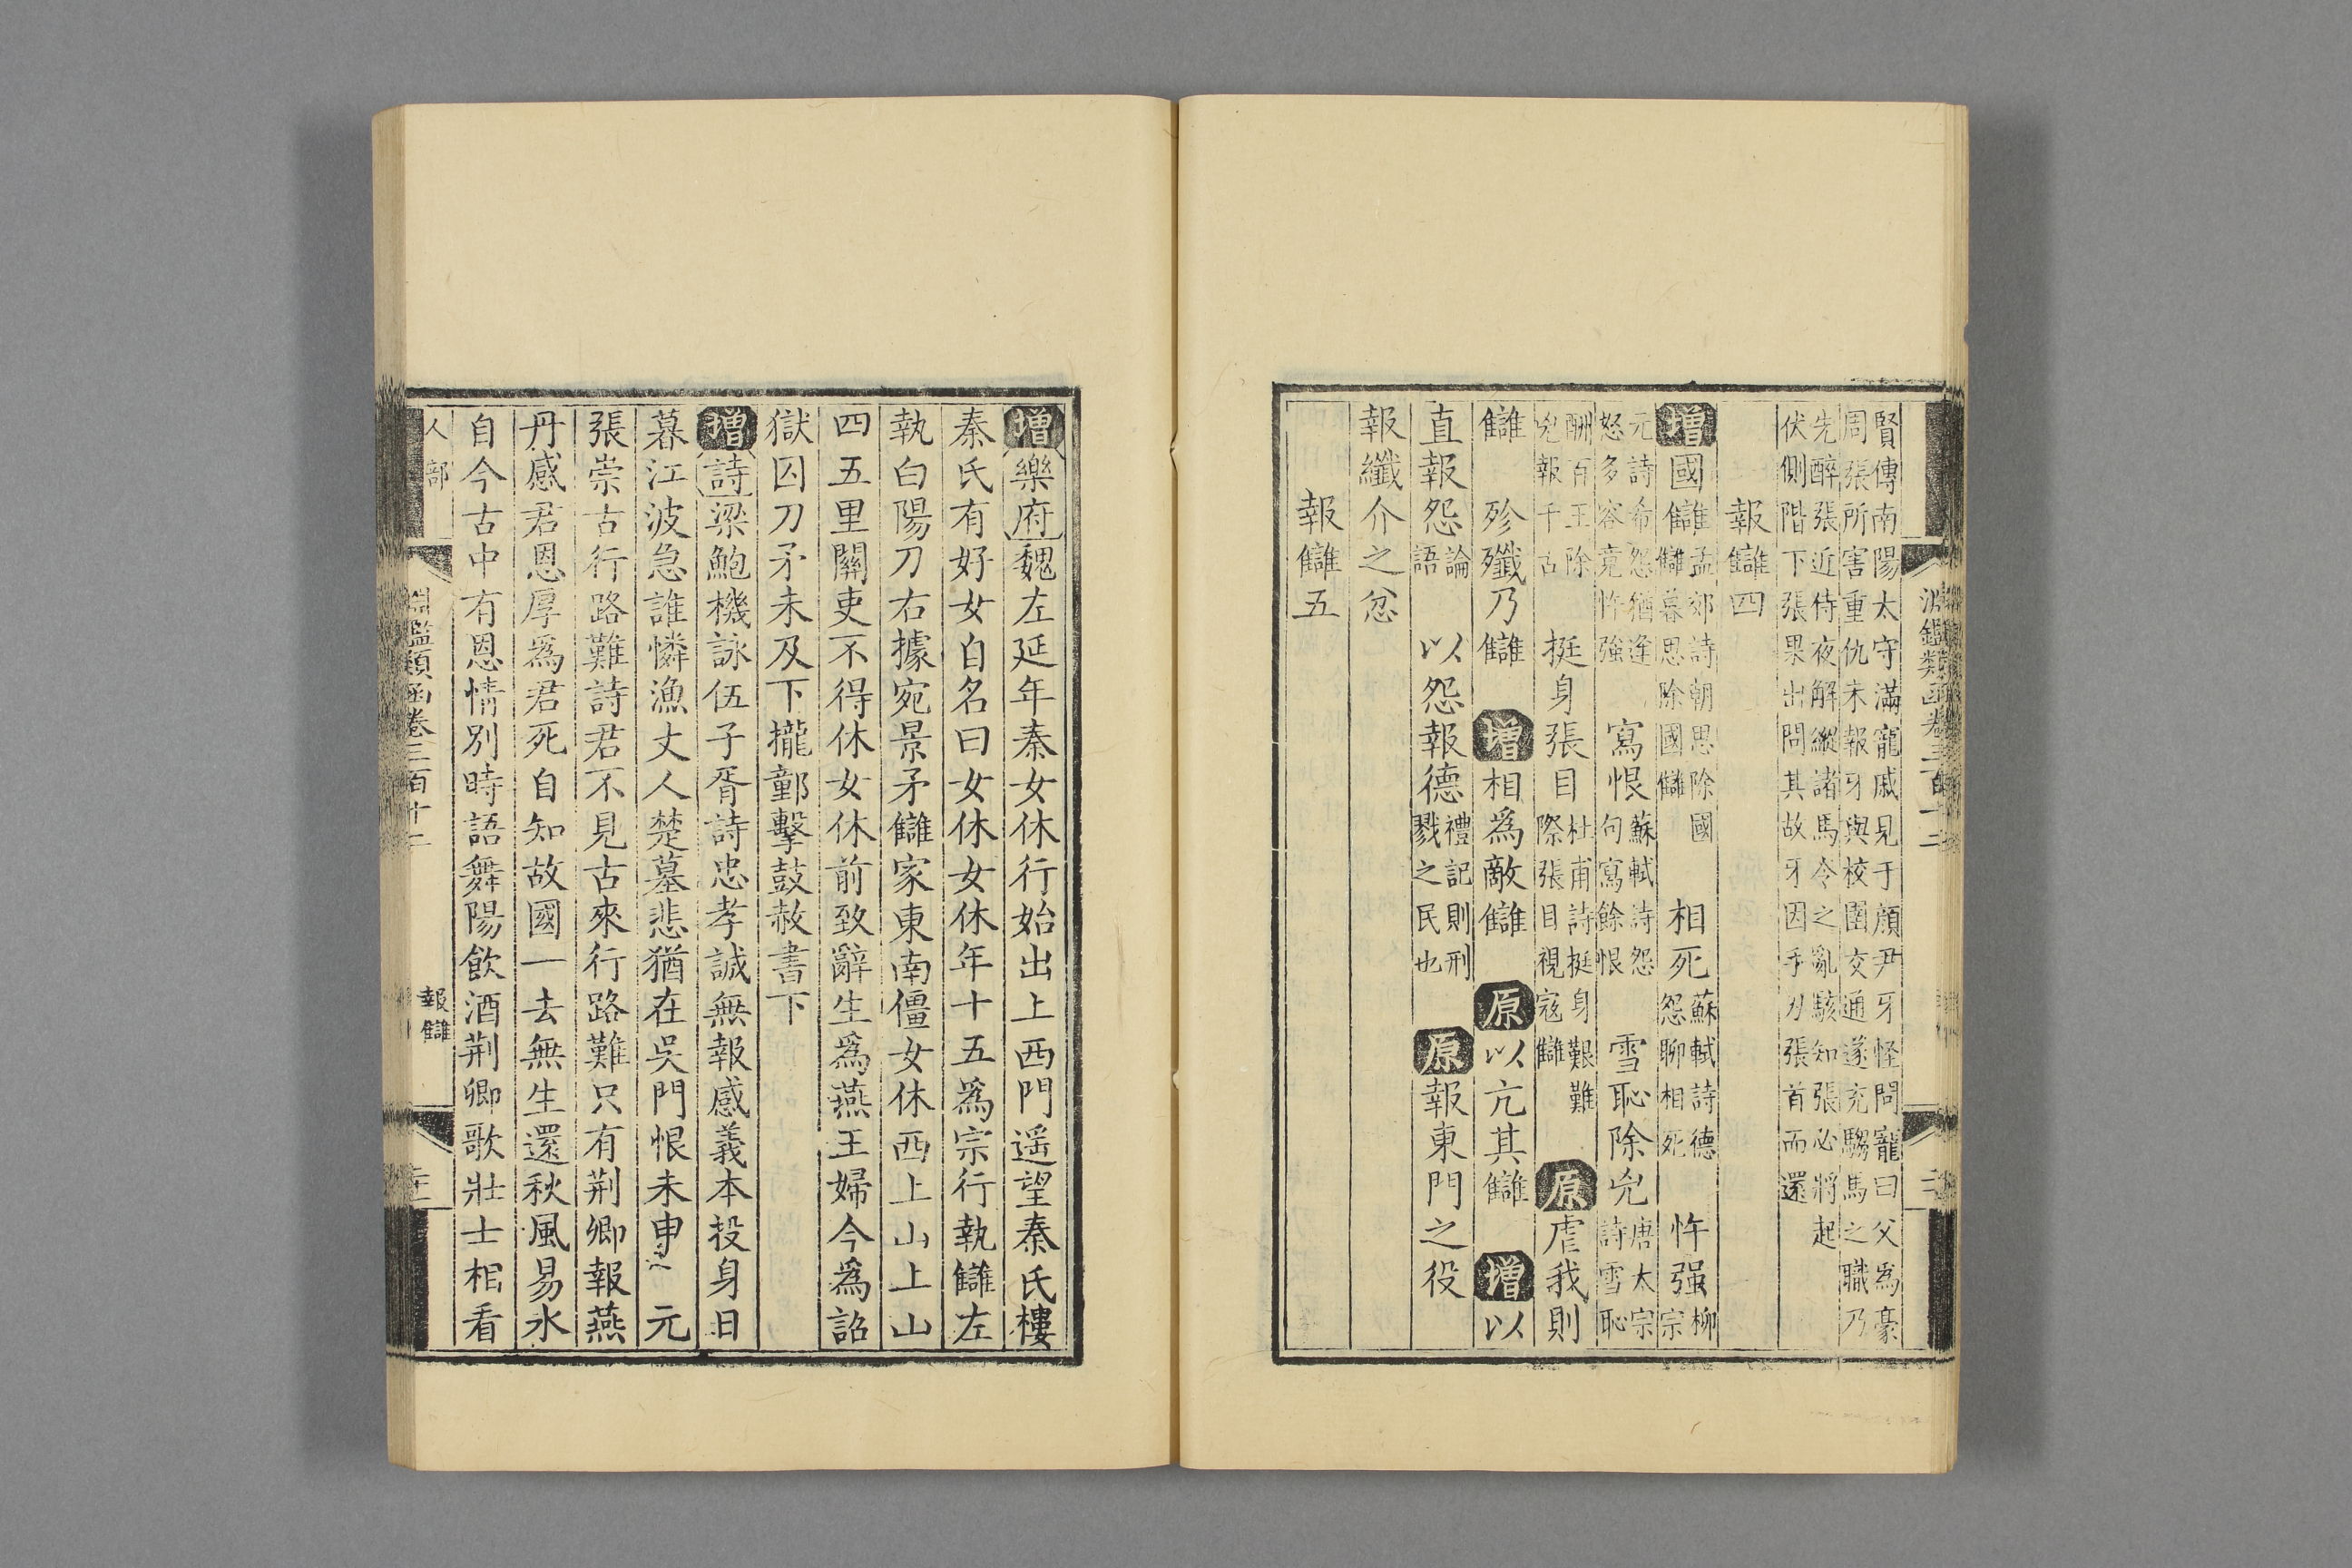 賢傳南陽太守滿寵戚見于顔尹牙怪問寵曰父爲豪
周張所害重仇未報牙與校圍交通遂充騶馬之職乃
先醉張近侍夜解縱諸馬令之亂駭知張必將起
伏側階下張果出問其故牙因手刃張首而還
報讎四
增國讎孟郊詩朝思除國
讎暮思除國讎
相死蘇軾詩德
怨聊相死
忤强柳宗
元詩希怨猶逢
怒多容竟忤強
寫恨蘇軾詩怨
句寫餘恨
雪恥除兇唐太宗
詩雪恥
酬百王除
兇報千古
挺身張目杜甫詩挺身艱難
際張目視寇讎
原虐我則
讎
殄殲乃讎
增相爲敵讎
原以亢其讎
增以
直報怨論
語
以怨報德禮記則刑
戮之民也
原報東門之役
報纖介之忿
報讎五
增樂府魏左延年秦女休行始出上西門遥望秦氏樓
秦氏有好女自名曰女休女休年十五爲宗行執讎左
執白陽刀右據宛景矛讎家東南僵女休西上山上山
四五里關吏不得休女休前致辭生爲燕王婦今爲詔
獄囚刀矛未及下攏鄿擊鼓赦書下
增詩梁鮑機詠伍子胥詩忠孝誠無報感義本投身日
暮江波急誰憐漁丈人楚墓悲猶在吳門恨未申
元
張崇古行路難詩君不見古來行路難只有荆卿報燕
丹感君恩厚爲君死自知故國一去無生還秋風易水
自今古中有恩情別時語舞陽飲酒荆卿歌壯士相看
人部
淵鑑類函卷三百十二
報讎